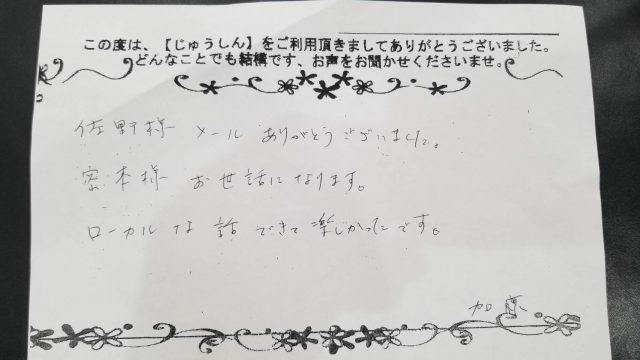 この度は、【じゅうしん】をご利用頂きましてありがとうございました。
どんなことでも結構です、お声をお聞かせくださいませ。
佐野様 メール ありがとうございました。
宮本様 お世話になります。
ローカルな 話 できて楽しかったです。
加藤